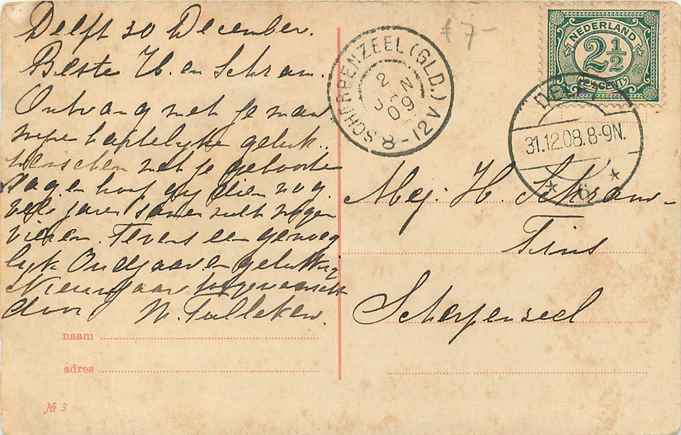 Delft 30 December.
Beste H. en Schram.
Ontvang met je man
mijne hartelijke geluk-
wenschen met je geboorte
dag en hoop gij dien nog
vele jaren samen zult mogen
vieren. Tevens een genoeg
lijk Oudejaar en gelukkig
Nieuwjaar toegewenscht
door N. Tulleken.
naam
adres
№ 3
f 7-
SCHERPENZEEL (GLD.)
2 JAN 09
8-12 V.
NEDERLAND
2½
CENT
DELFT
31.12.08.8-9N.
* 6 *
Mej: H. Schram-
Tins
Scherpenseel